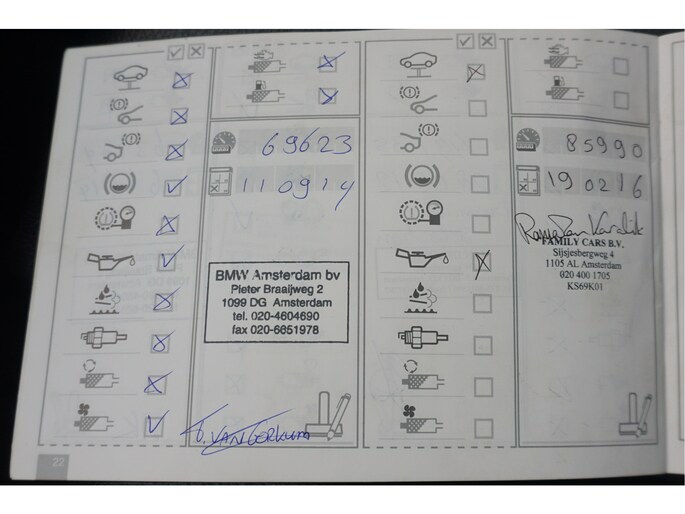 69623
110914
BMW Amsterdam bv
Pieter Braaijweg 2
1099 DG Amsterdam
tel. 020-4604690
fax 020-6651978
22
85990
190216
FAMILY CARS B.V.
Sijsjesbergweg 4
1105 AL Amsterdam
020 400 1705
KS69K01